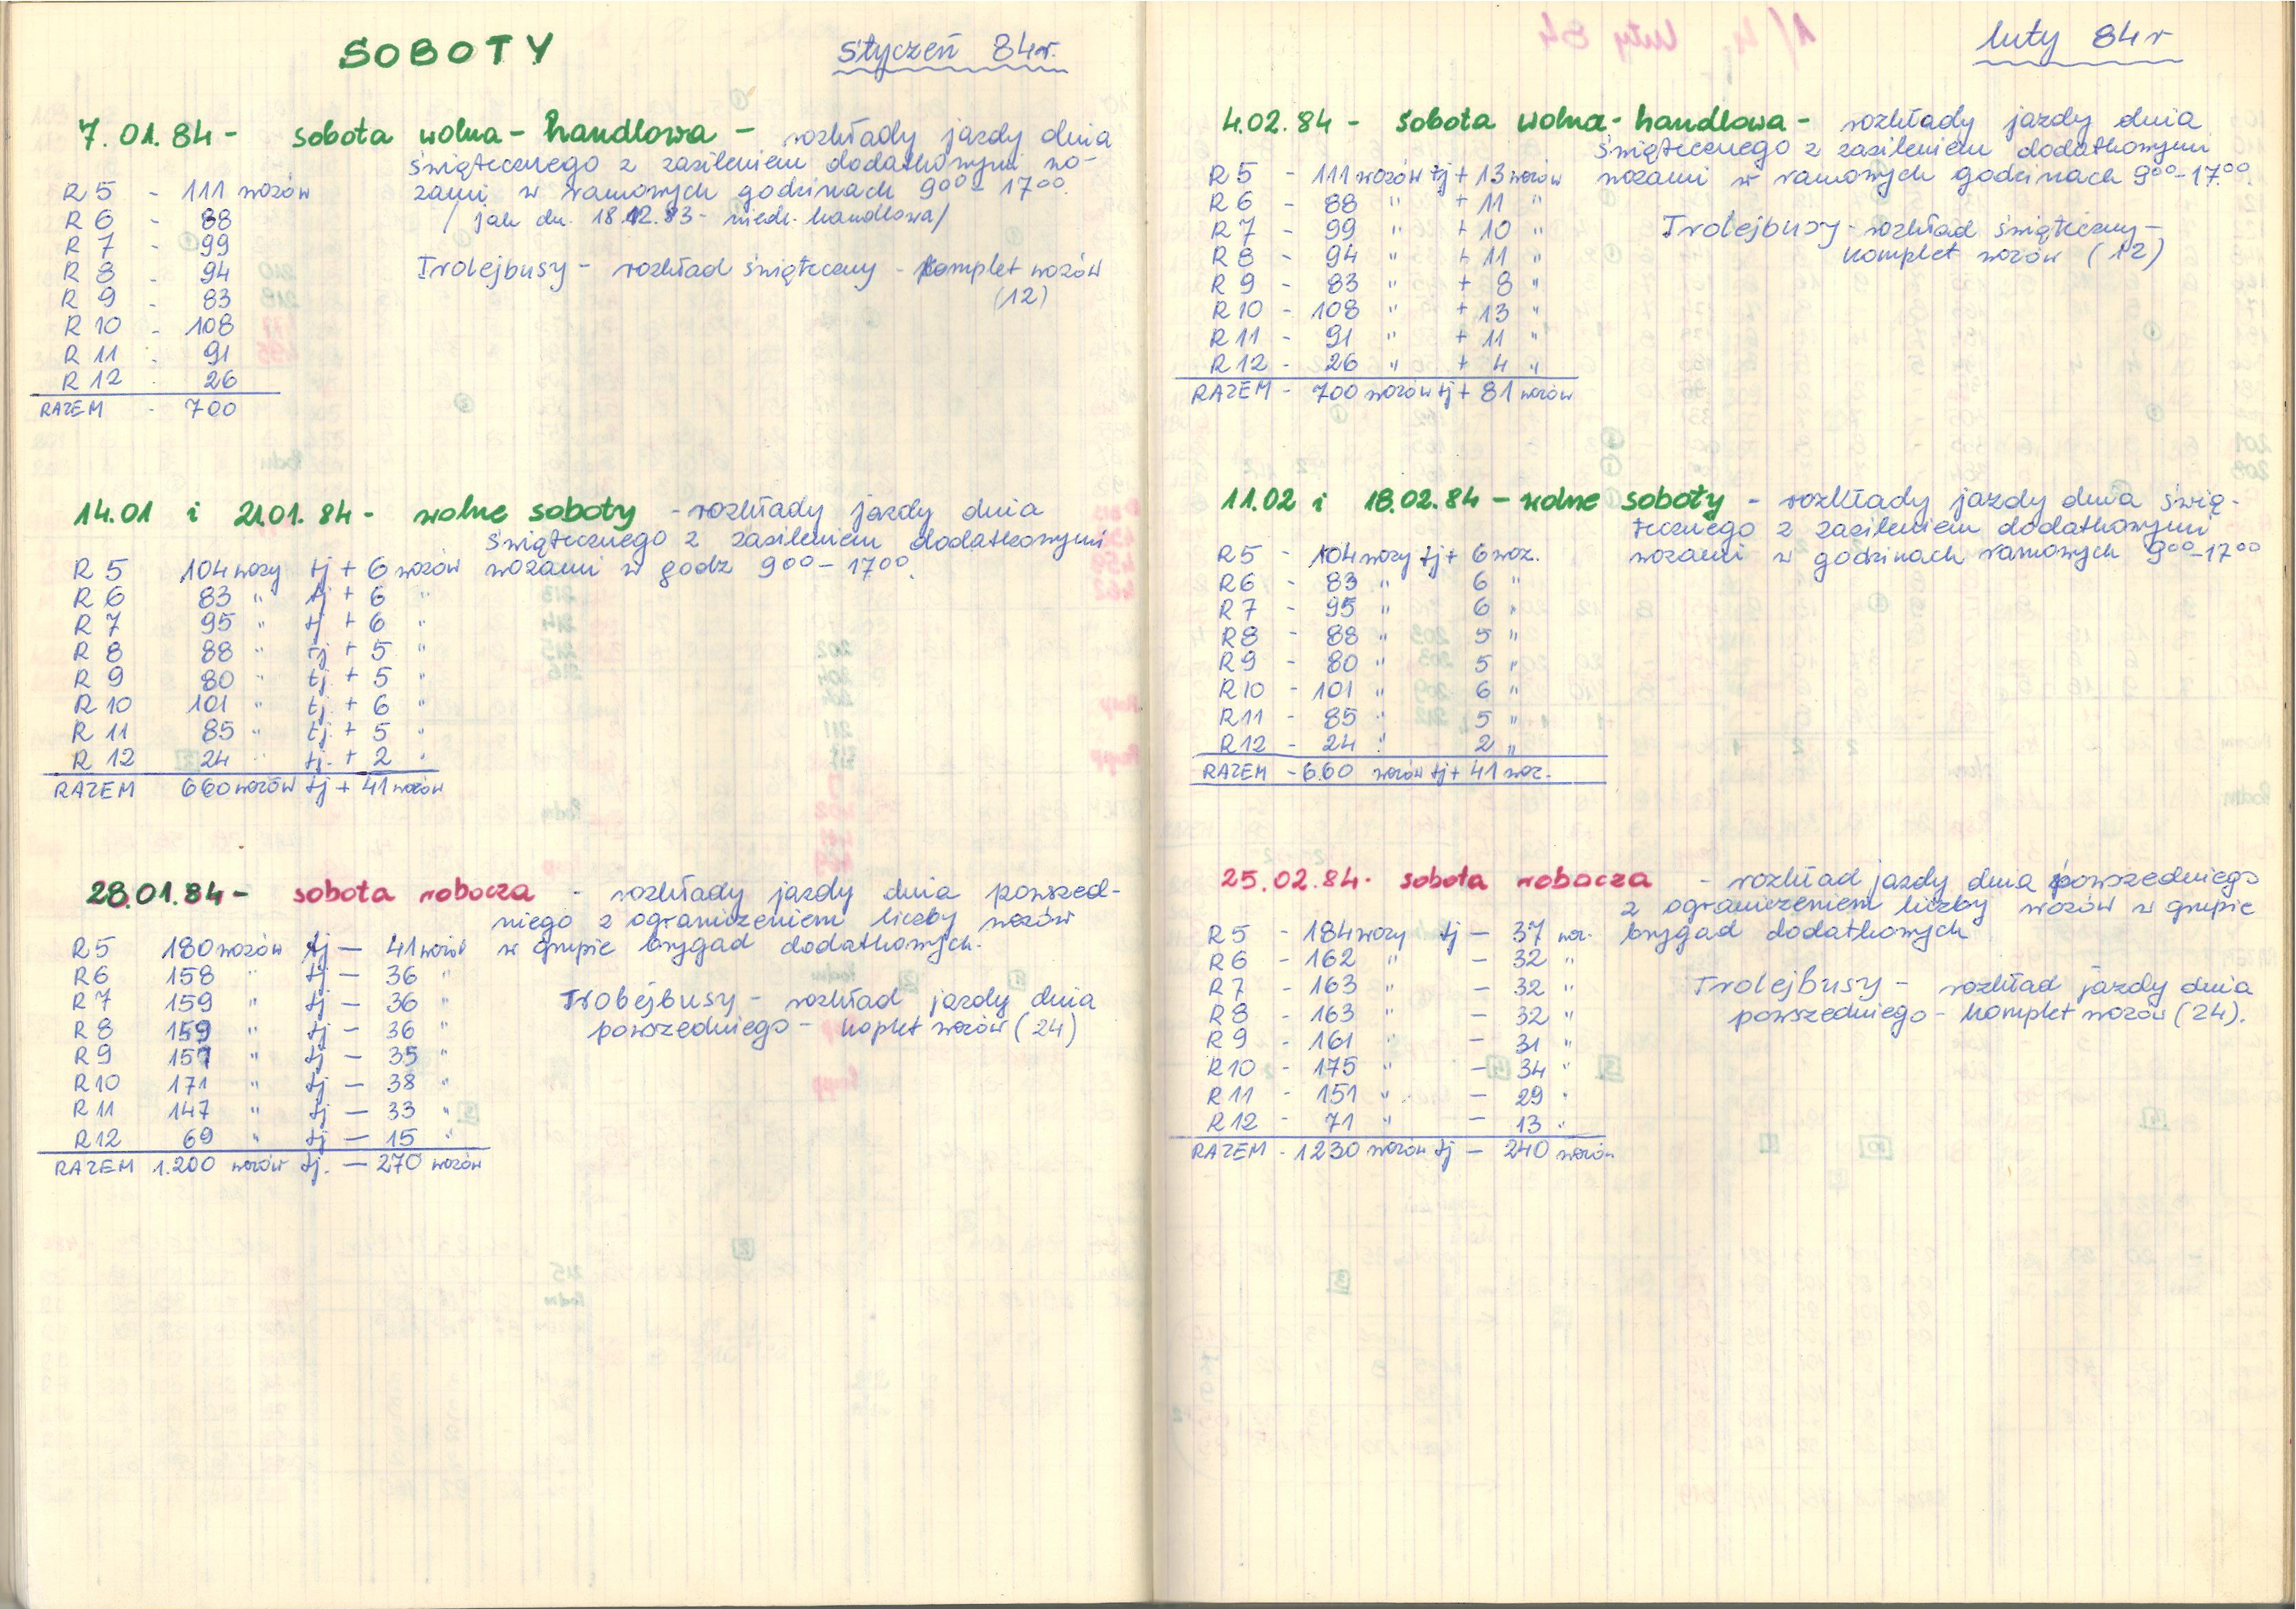 SOBOTY
styczeń 84r.
7.01.84 - sobota wolna - handlowa - rozkłady jazdy dnia
świątecznego z zasileniem dodatkowymi wo-
R 5 - 111 wozów zami w ramowych godzinach 9⁰⁰ - 17⁰⁰.
R 6 - 88 / jak dn. 18.12.83 - niedz. handlowa/
R 7 - 99
R 8 - 94 Trolejbusy - rozkład świąteczny - komplet wozów
R 9 - 83 (12)
R 10 - 108
R 11 - 91
R 12 - 26
RAZEM - 700
14.01 i 21.01.84 - wolne soboty - rozkłady jazdy dnia
świątecznego z zasileniem dodatkowymi
R 5 104 wozy tj + 6 wozów wozami w godz 9⁰⁰ - 17⁰⁰.
R 6 83 " tj + 6 "
R 7 95 " tj + 6 "
R 8 88 " tj + 5 "
R 9 80 " tj + 5 "
R 10 101 " tj. + 6 "
R 11 85 " tj. + 5 "
R 12 24 " tj. + 2 "
RAZEM 660 wozów tj + 41 wozów
28.01.84 - sobota robocza - rozkłady jazdy dnia powszed-
niego z ograniczeniem liczby wozów
R 5 180 wozów tj - 41 wozów w grupie brygad dodatkowych.
R 6 158 " tj - 36 "
R 7 159 " tj - 36 " Trolejbusy - rozkład jazdy dnia
R 8 159 " tj - 36 " powszedniego - koplet wozów (24)
R 9 157 " tj - 35 "
R 10 171 " tj - 38 "
R 11 147 " tj - 33 "
R 12 69 " tj - 15 "
RAZEM 1.200 wozów tj. - 270 wozów
luty 84r
4.02.84 - sobota wolna - handlowa - rozkłady jazdy dnia
świątecznego z zasileniem dodatkowymi
R 5 - 111 wozów tj + 13 wozów wozami w ramowych godzinach 9⁰⁰ - 17⁰⁰.
R 6 - 88 " + 11 "
R 7 - 99 " + 10 " Trolejbusy - rozkład świąteczny -
R 8 - 94 " + 11 " komplet wozów (12)
R 9 - 83 " + 8 "
R 10 - 108 " + 13 "
R 11 - 91 " + 11 "
R 12 - 26 " + 4 "
RAZEM - 700 wozów tj + 81 wozów
11.02 i 18.02.84 - wolne soboty - rozkłady jazdy dnia świą-
tecznego z zasileniem dodatkowymi
R 5 - 104 wozy tj + 6 woz. wozami w godzinach ramowych 9⁰⁰-17⁰⁰
R 6 - 83 " 6 "
R 7 - 95 " 6 "
R 8 - 88 " 5 "
R 9 - 80 " 5 "
R 10 - 101 " 6 "
R 11 - 85 " 5 "
R 12 - 24 " 2 "
RAZEM - 660 wozów tj + 41 woz.
25.02.84. sobota robocza - rozkład jazdy dnia powszedniego
z ograniczeniem liczby wozów w grupie
R 5 - 184 wozy tj - 37 woz. brygad dodatkowych
R 6 - 162 " - 32 "
R 7 - 163 " - 32 " Trolejbusy - rozkład jazdy dnia
R 8 - 163 " - 32 " powszedniego - komplet wozów (24).
R 9 - 161 " - 31 "
R 10 - 175 " - 34 "
R 11 - 151 " - 29 "
R 12 - 71 " - 13 "
RAZEM - 1230 wozów tj - 240 wozów